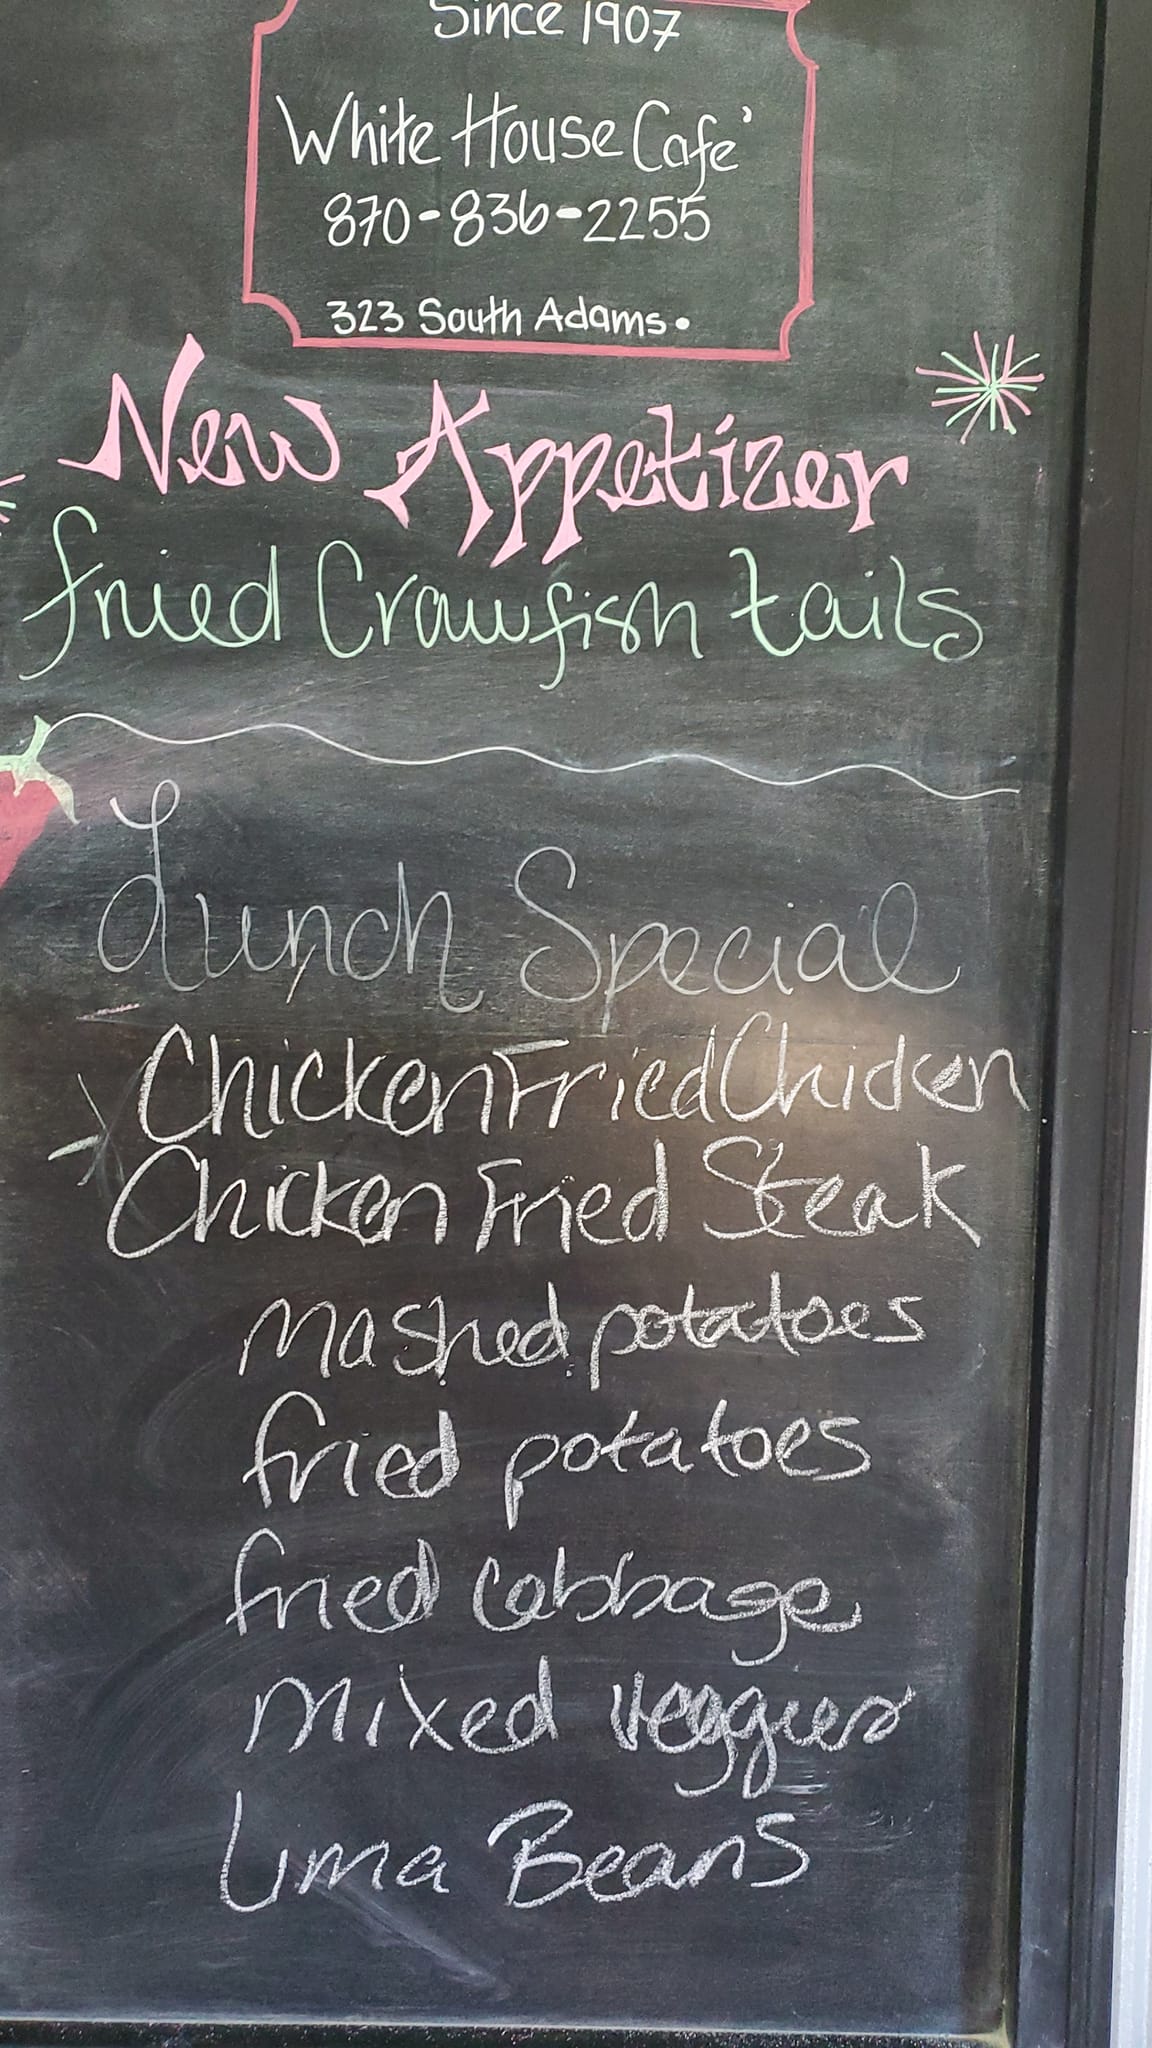 Since 1907
White House Cafe'
870-836-2255
323 South Adams.
New Appetizer
fried Crawfish tails
Lunch Special
Chicken Fried Chicken
Chicken Fried Steak
mashed potatoes
fried potatoes
fried cabbage
mixed veggies
Lima Beans